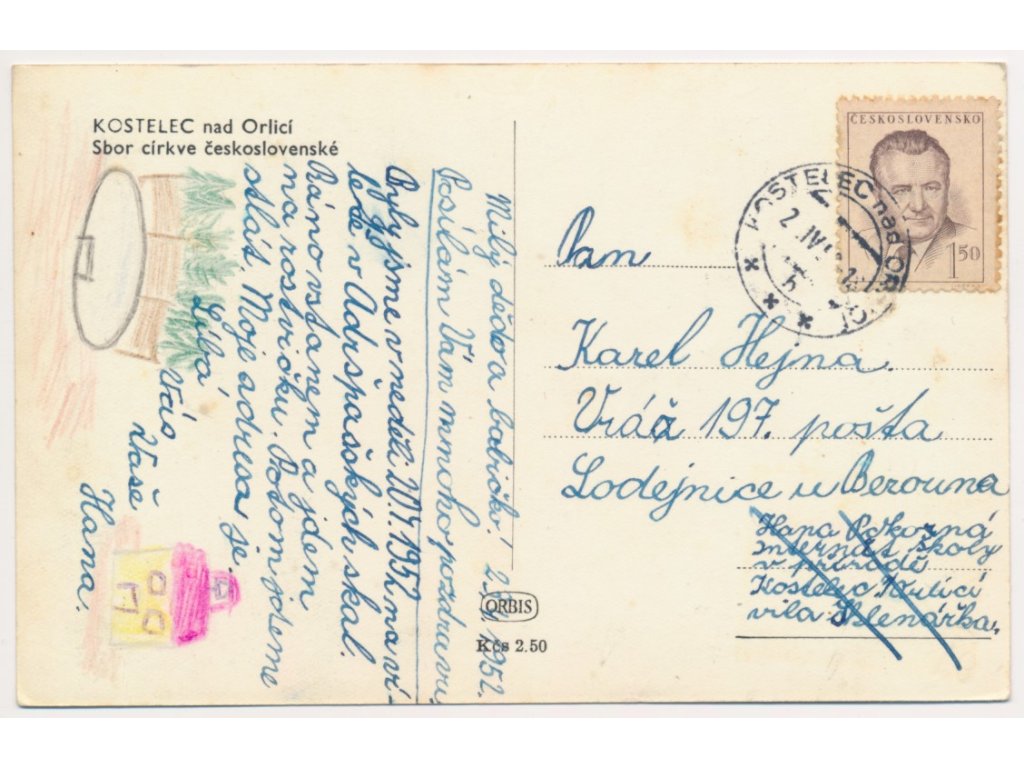 KOSTELEC nad Orlicí
Sbor církve československé
Milý dědo a babičko! 1952.
Posílám Vám mnoho pozdravu,
Byly jsme v neděli 1952 na vý
letě v Adršpašských skal.
Ráno vstanem a jdem
na rostvičku. Potom jdeme
stlát. Moje adresa je.
Líbá
Vás
Vaše
Hana.
ORBIS
Kčs 2.50
ČESKOSLOVENSKO
1.50
KOSTELEC nad ORLICÍ
Pam
Karel Hejna.
Vráž 197. pošta
Lodejnice u Berouna
Hana Pokorná
internát školy
v přírodě
Kostelec n Orlicí
vila Sklenářka.